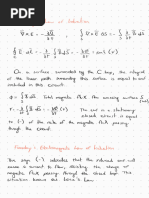 Law of Induction
∇ × E = - ∂B/∂t , ∮ ∇ × E dS = - ∮ ∂/∂t B dS
∮ E dl = - ∮ ∂/∂t B dS = emf (V)
On a surface surrounded by the C loop, the integral
of the linear path covering this surface is equal to emf
induced in this circuit.
The total magnetic flux passing through the
surface. The emf in a stationary
closed circuit is equal to
of magnetic flux passing through
the circuit.
Faraday's Electromagnetic Law of Induction
The sign (-) indicates that the induced emf will
cause a current to flow, opposing the change in the
magnetic flux passing through the closed loop. This
situation became the Lenz's Law.